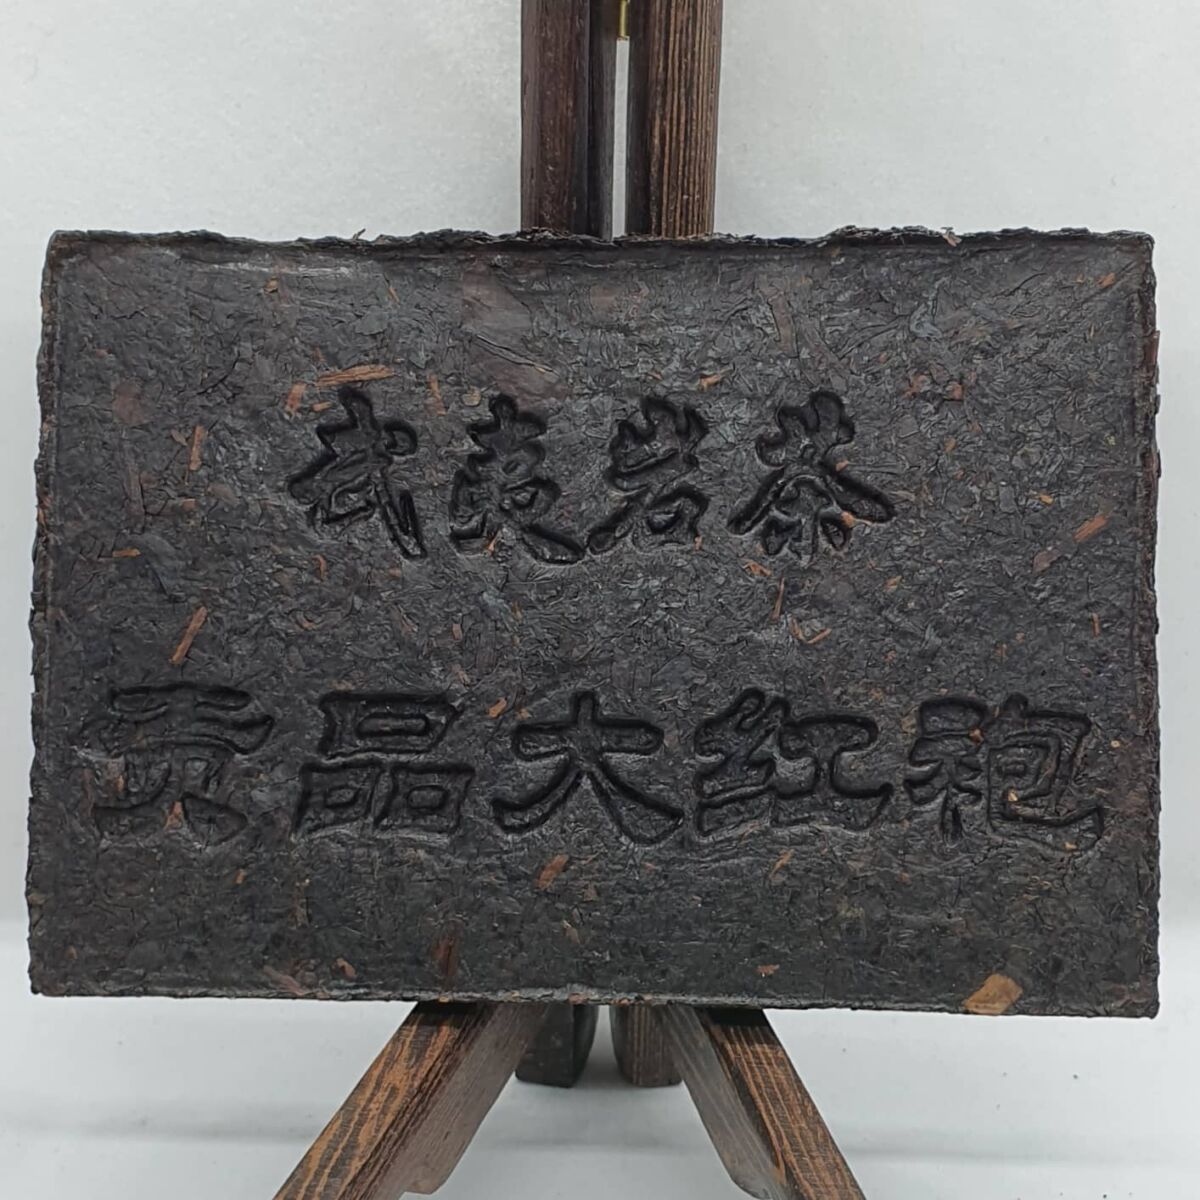 武夷岩茶
贡品大红袍